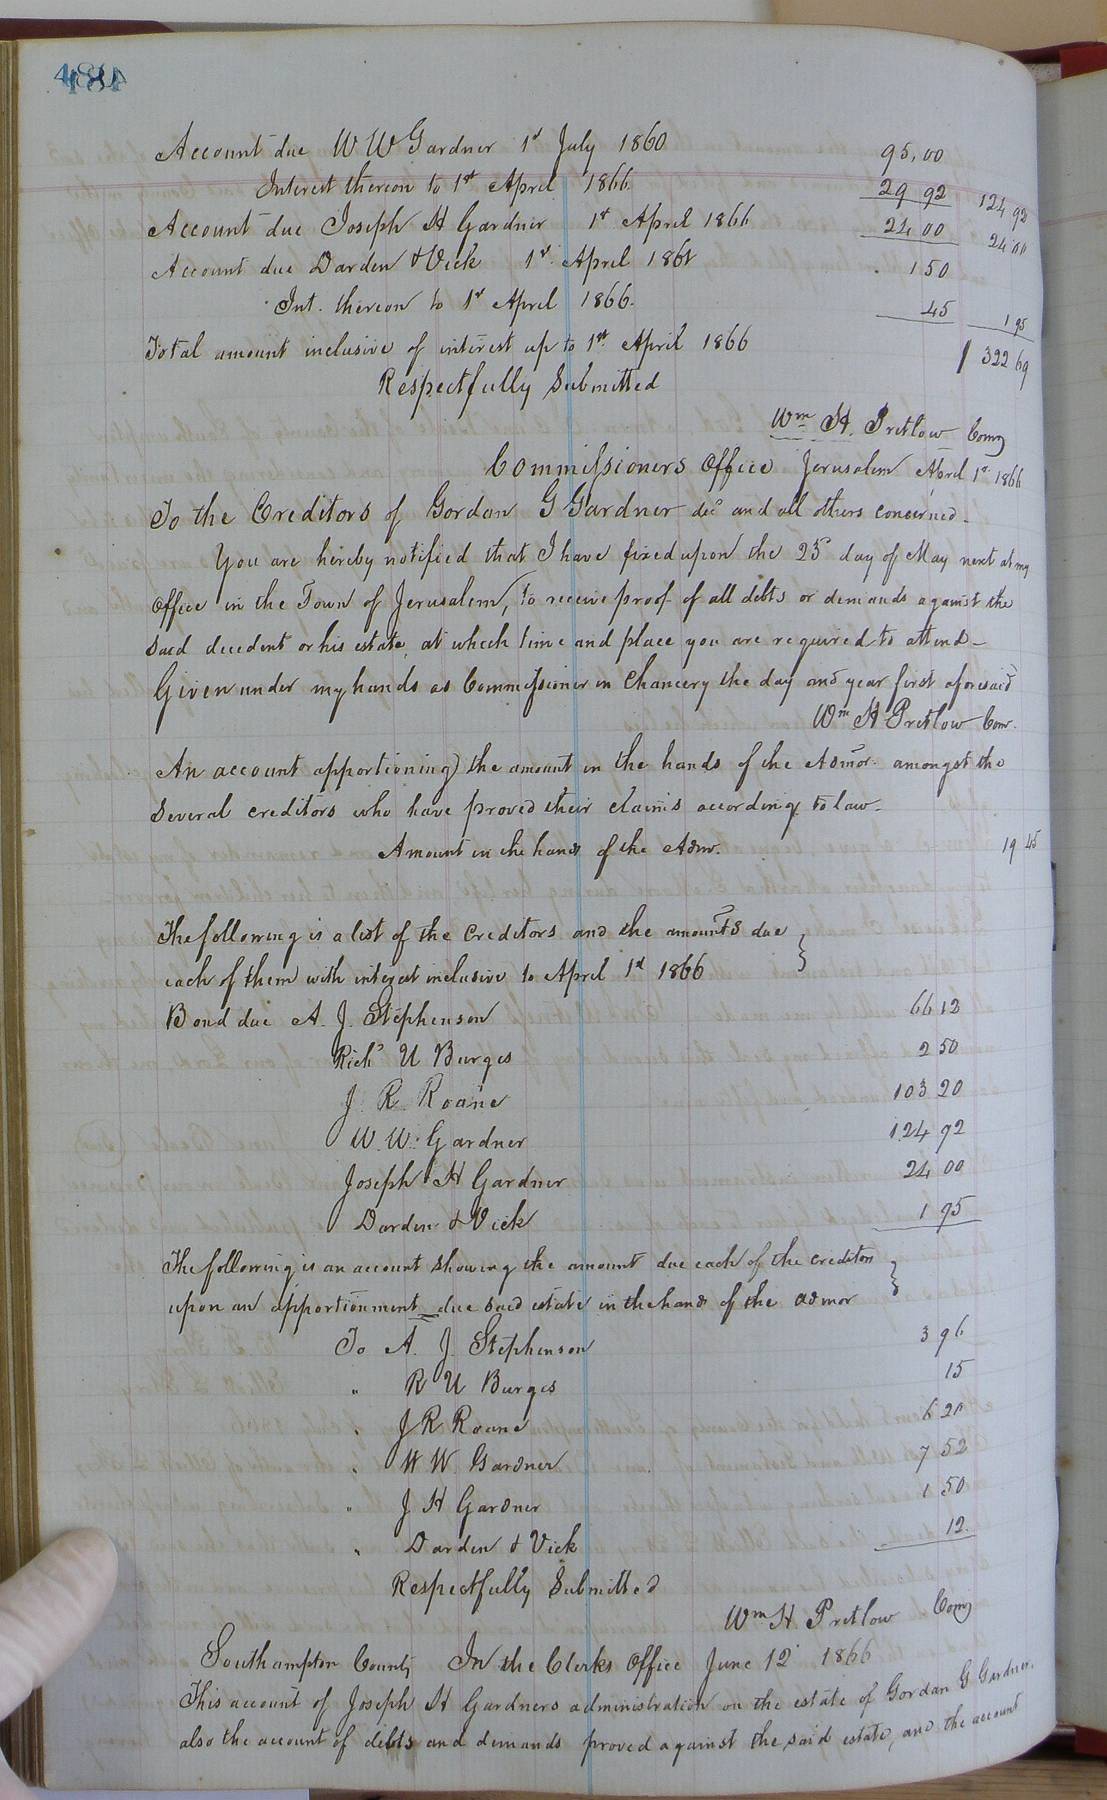 484
Account due W W Gardner 1st July 1860 95.00
Interest thereon to 1st April 1866. 29 92 124 92
Account due Joseph H Gardner 1st April 1866 24 00 24 00
Account due Darden & Vick 1st April 1861 1 50
Int. thereon to 1st April 1866. 45 1 95
Total amount inclusive of interest up to 1st April 1866 322 69
Respectfully Submitted
Wm H. Pretlow Comr
Commissioners Office Jerusalem April 1st 1866
To the Creditors of Gordon G Gardner decd and all others concerned.
You are hereby notified that I have fixed upon the 25 day of May next at my
Office in the Town of Jerusalem, to receive proof of all debts or demands against the
said decedent or his estate, at which time and place you are required to attend
Given under my hands as Commissioner in Chancery the day and year first aforesaid
Wm H Pretlow Comr.
An account apportioning the amount in the hands of the Admor. amongst the
several creditors who have proved their claims according to law.
Amount in the hands of the Admr. 19 45
The following is a list of the Creditors and the amounts due
each of them with interest inclusive to April 1st 1866
Bond due A. J. Stephenson 66 12
Richd U Burges 2 50
J. R. Roane 103 20
W. W. Gardner 124 92
Joseph H Gardner 24 00
Darden & Vick 1 95
The following is an account showing the amount due each of the creditors
upon an apportionment due said estate in the hands of the admor
To A. J. Stephenson 3 96
" R U Burges 15
" J R Roane 6 20
" W W. Gardner 7 52
" J H Gardner 1 50
" Darden & Vick 12
Respectfully Submitted
Wm H. Pretlow Comr
Southampton County In the Clerks Office June 12 1866
This account of Joseph H Gardners administration on the estate of Gordan G Gardner,
also the account of debts and demands proved against the said estate, and the account